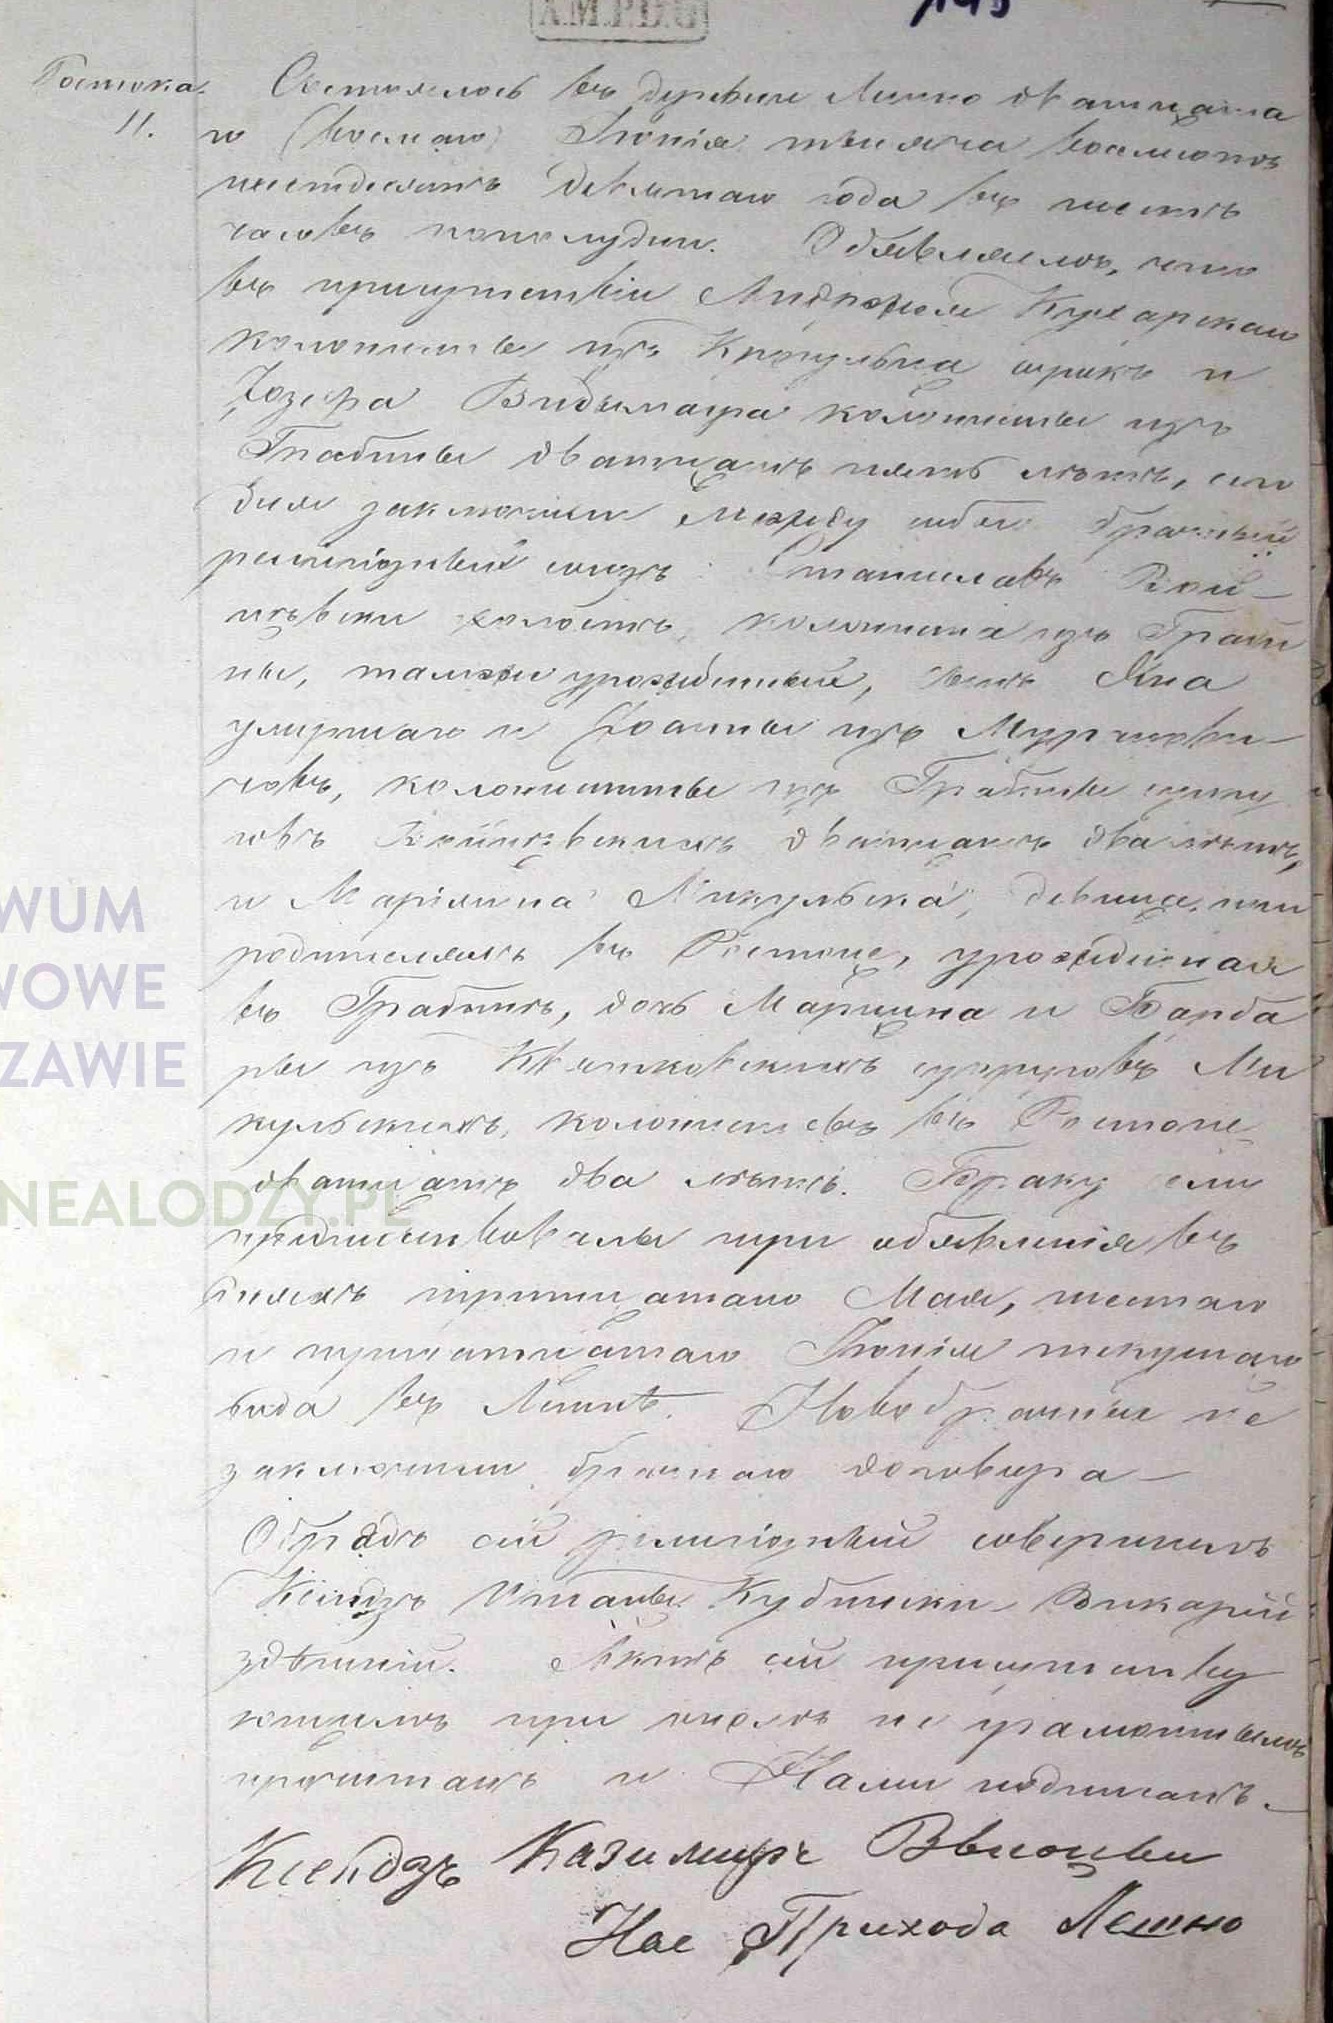 А.М.Р.D.G
Ростока.
11.
Состоялось въ деревне Лешно двадцата
го (восмаго) Іюнія тысяча восемсотъ
шестдесятъ девятаго года въ шесть
часовъ пополудни. Объявляемъ, что
въ присутствіи Андржея Кухарскаго
колонисты изъ сорокъ и
Іозефа колонисты изъ
Грабины двадцать пять летъ, сего
дня заключили между собою брачный
религіозный союзъ Станиславъ Вой-
цѣвски холостъ, колониста изъ Граби
ны, тамже урожденный, сынъ Яна
умершаго и Іоанны изъ
човъ, колонисты изъ Грабины супру
говъ двадцать два летъ,
и Маріянна Микульска, девица, при
родителяхъ въ Ростоце, урожденная
въ Грабинѣ, дочь Марцина и Барба
ры изъ Квятковскихъ супруговъ Ми
кульскихъ, колонистовъ въ Ростоце
двадцать два летъ. Браку сему
предшествовали три объявленія въ
дняхъ тритцатаго Мая, шестаго
и тринатцатаго Іюнія текущаго
года въ Лешнѣ. Новобрачные не
заключили брачнаго договора
Обрядъ сей религіозный совершилъ
Ксендзъ Викарій
здѣшній. Актъ сей присутству
ющимъ при ономъ не грамотнымъ
прочитанъ и Нами подписанъ.
Ксендзъ Казимиръ
Нас Прихода Лешно
WUM
WOWE
ZAWIE
NEALODZY.PL